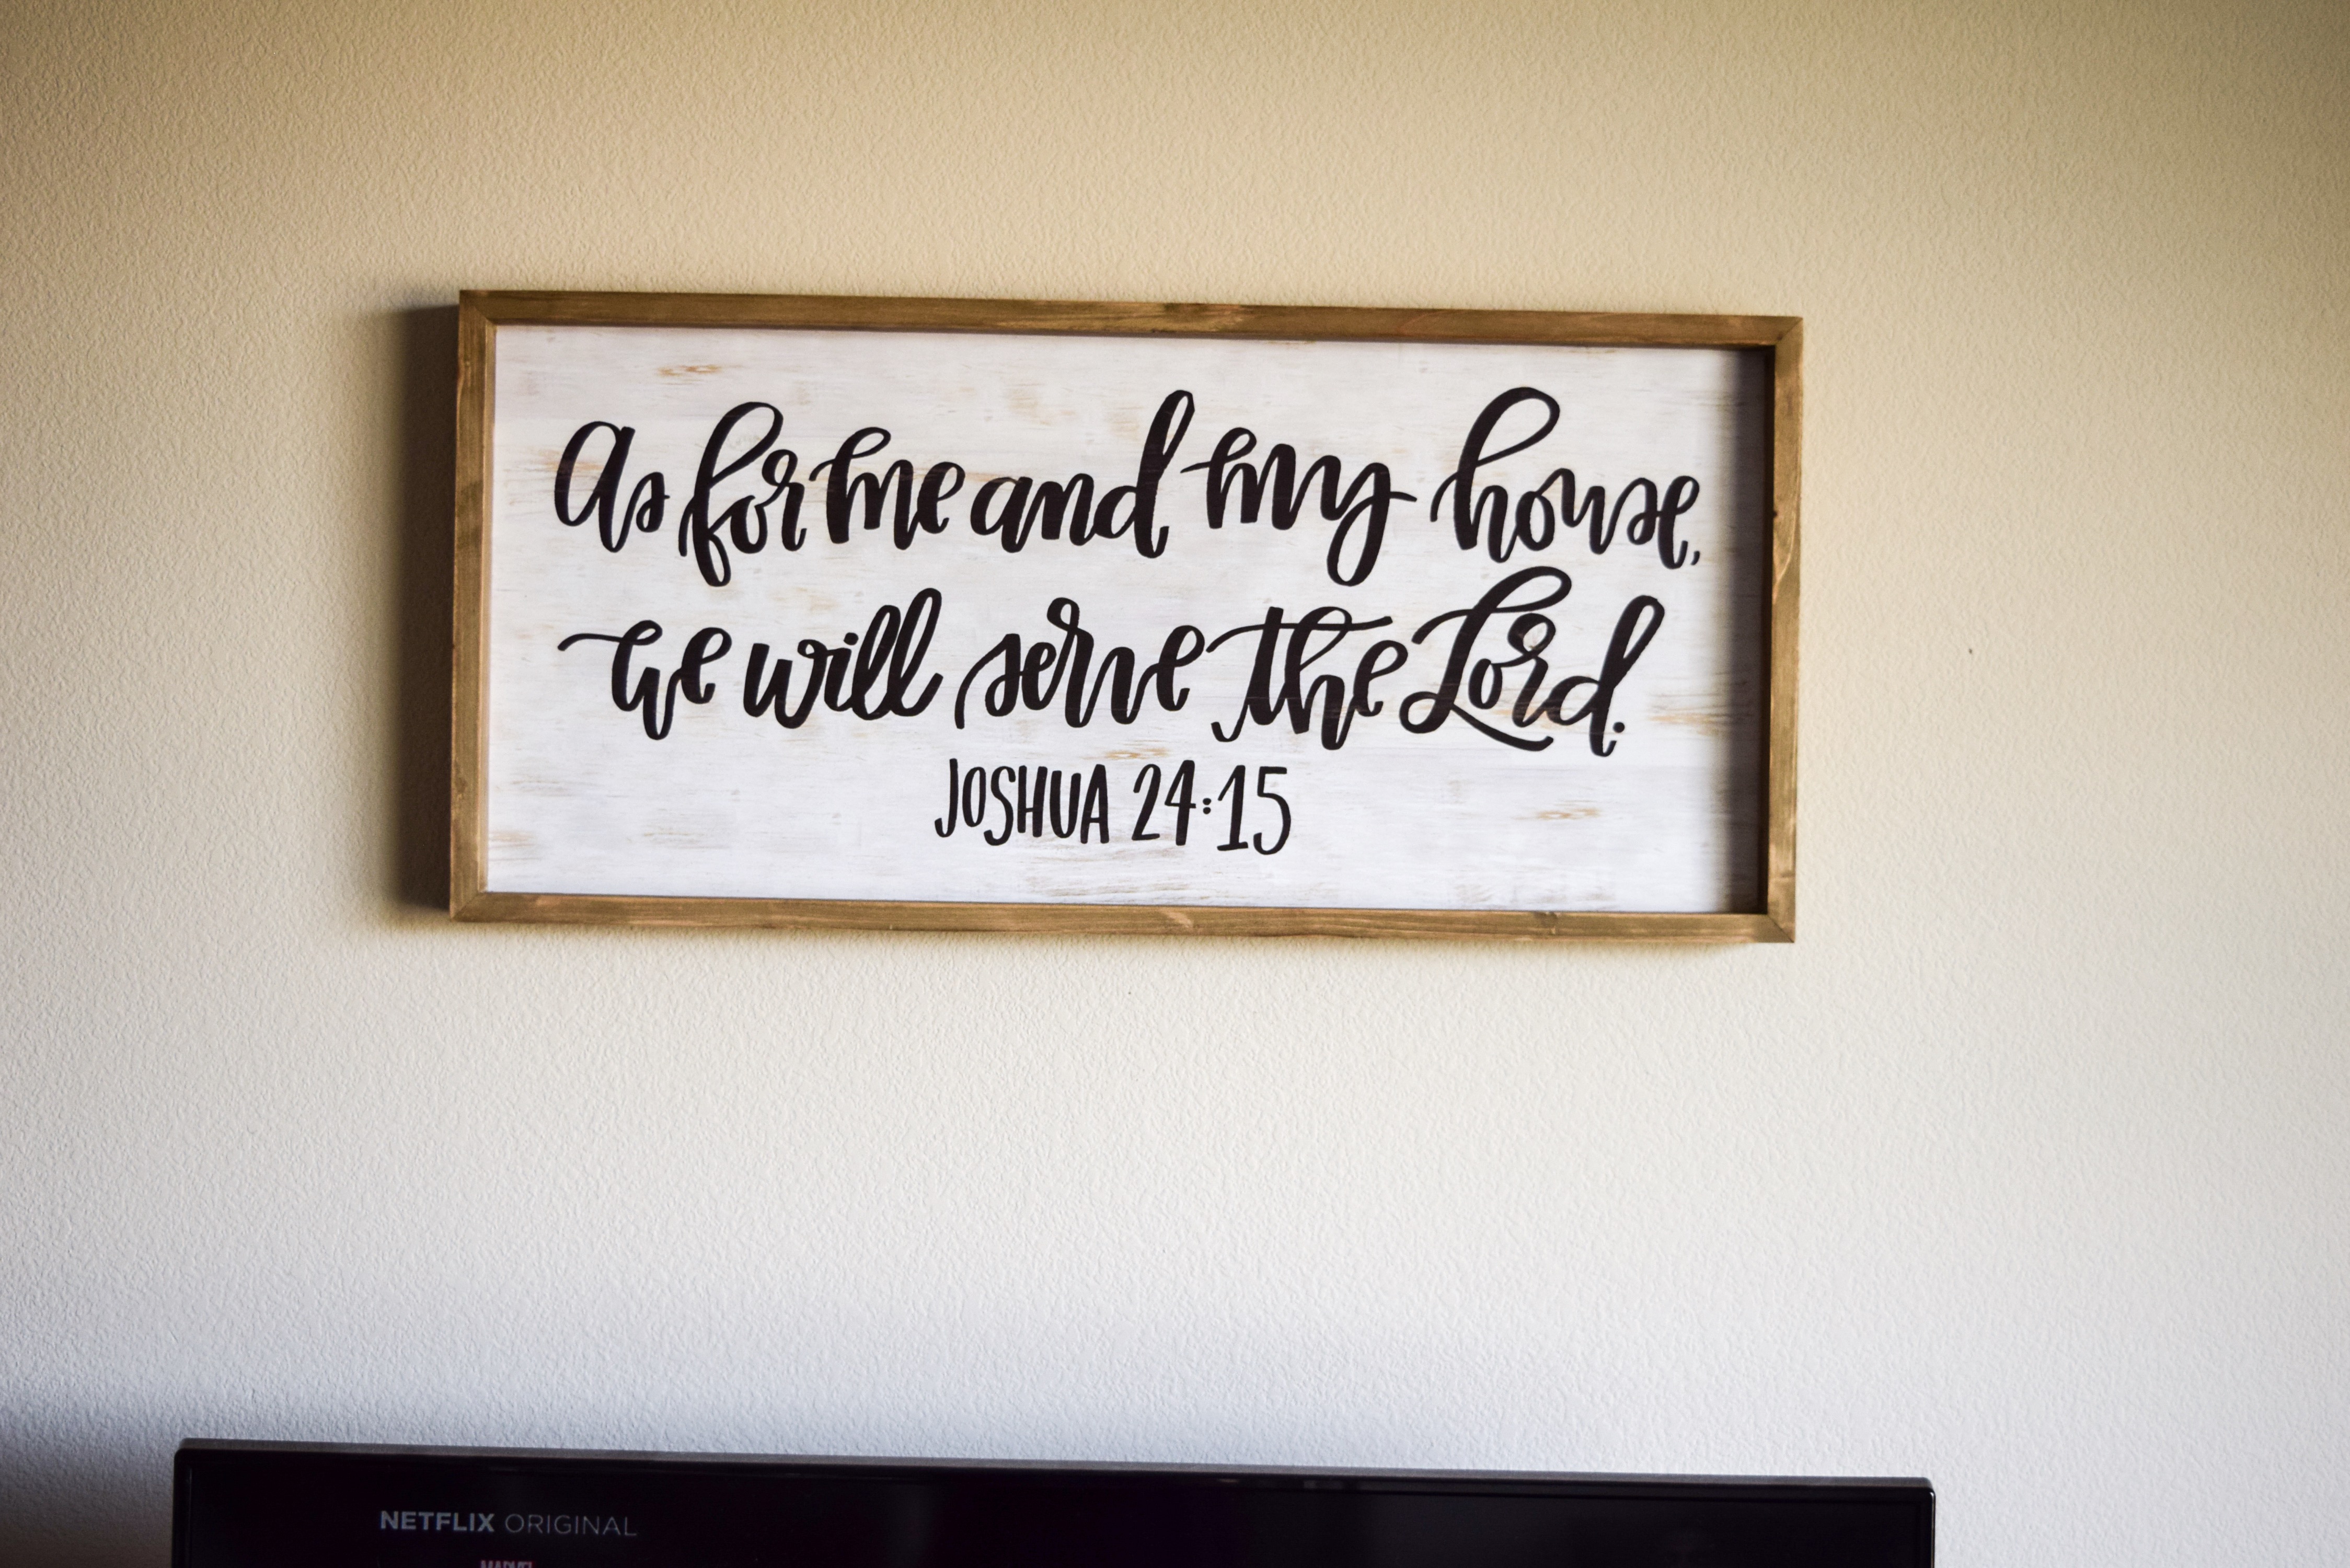 As for me and my house,
we will serve the Lord.
JOSHUA 24:15
NETFLIX ORIGINAL
MARVEL